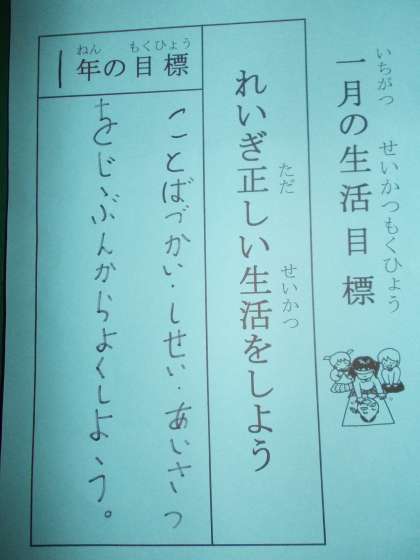 一月の生活目標
いちがつ せいかつもくひょう
れいぎ正しい生活をしよう
ただ せいかつ
1年の目標
ねん もくひょう
ことばづかい・しせい・あいさつ
をじぶんからよくしよう。